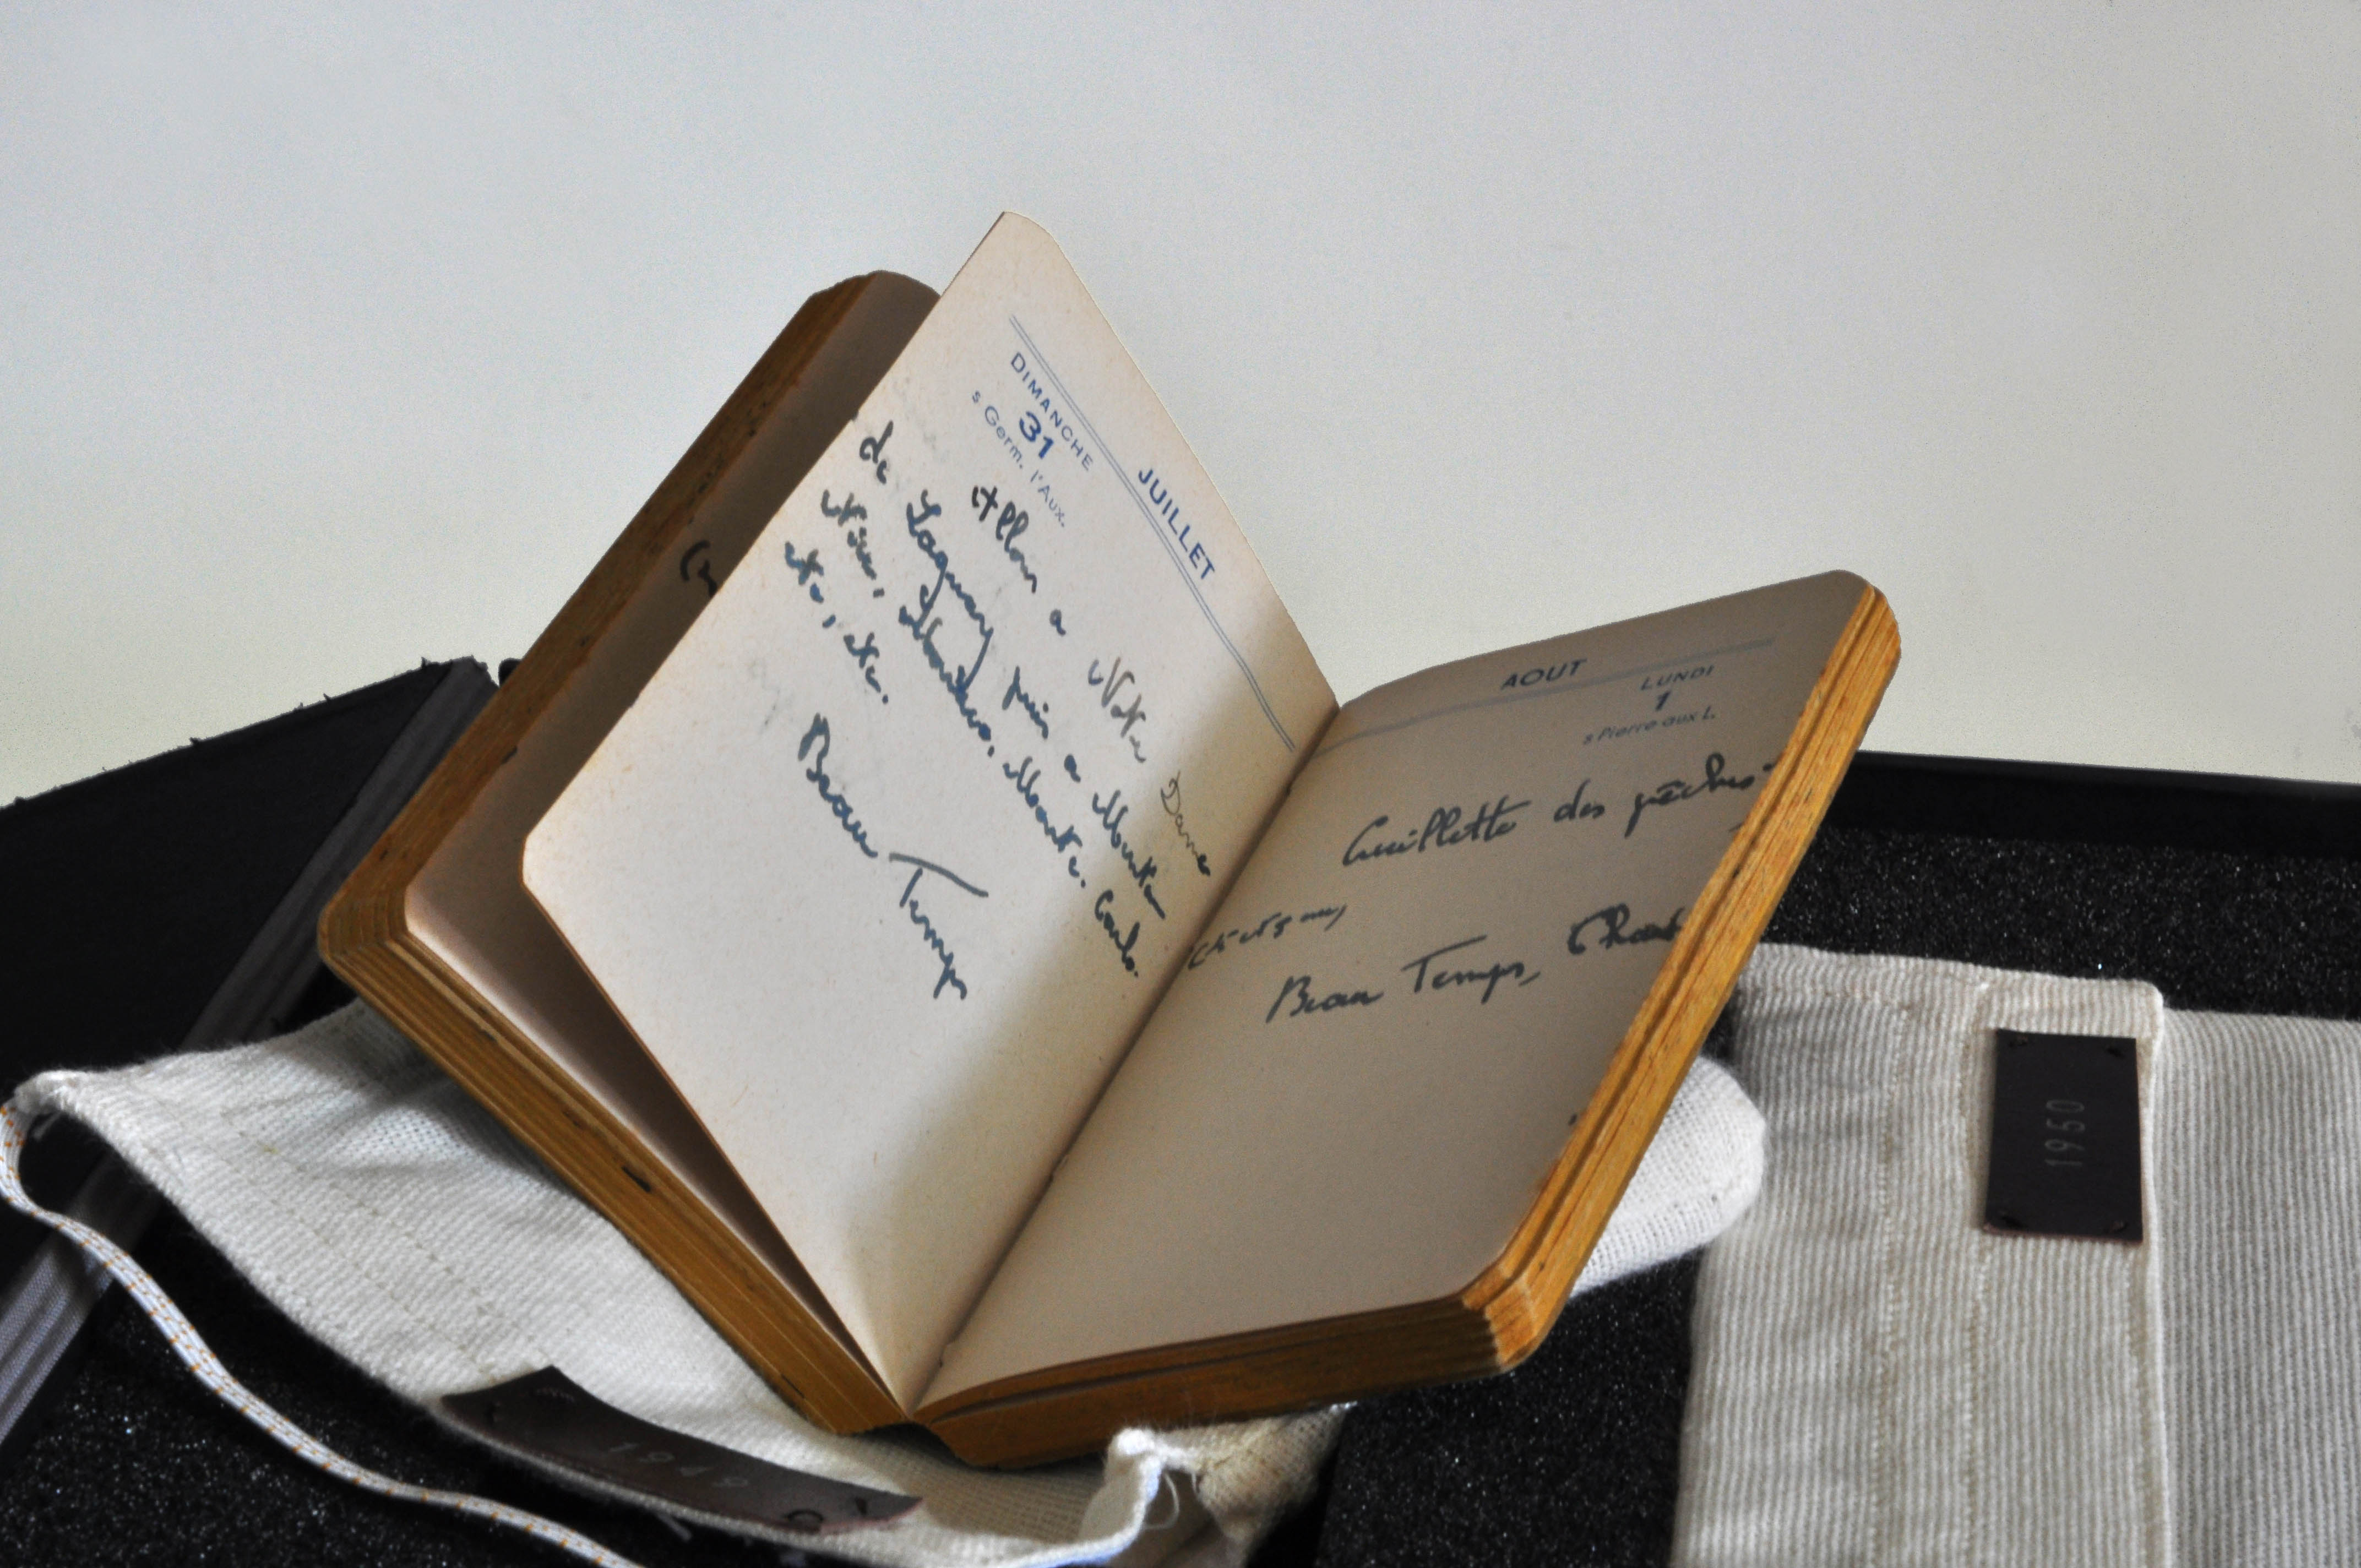 JUILLET
DIMANCHE
31
s Germ. l'Aux.
Allon a Notre Dame
de Laguay puis a Menton
Nice, Monaco. Monte. Carlo.
etc, etc.
Beau Temps
AOUT
LUNDI
1
s Pierre aux L.
Cueillette des pêches
Beau Temps, Chaud
1949
1950